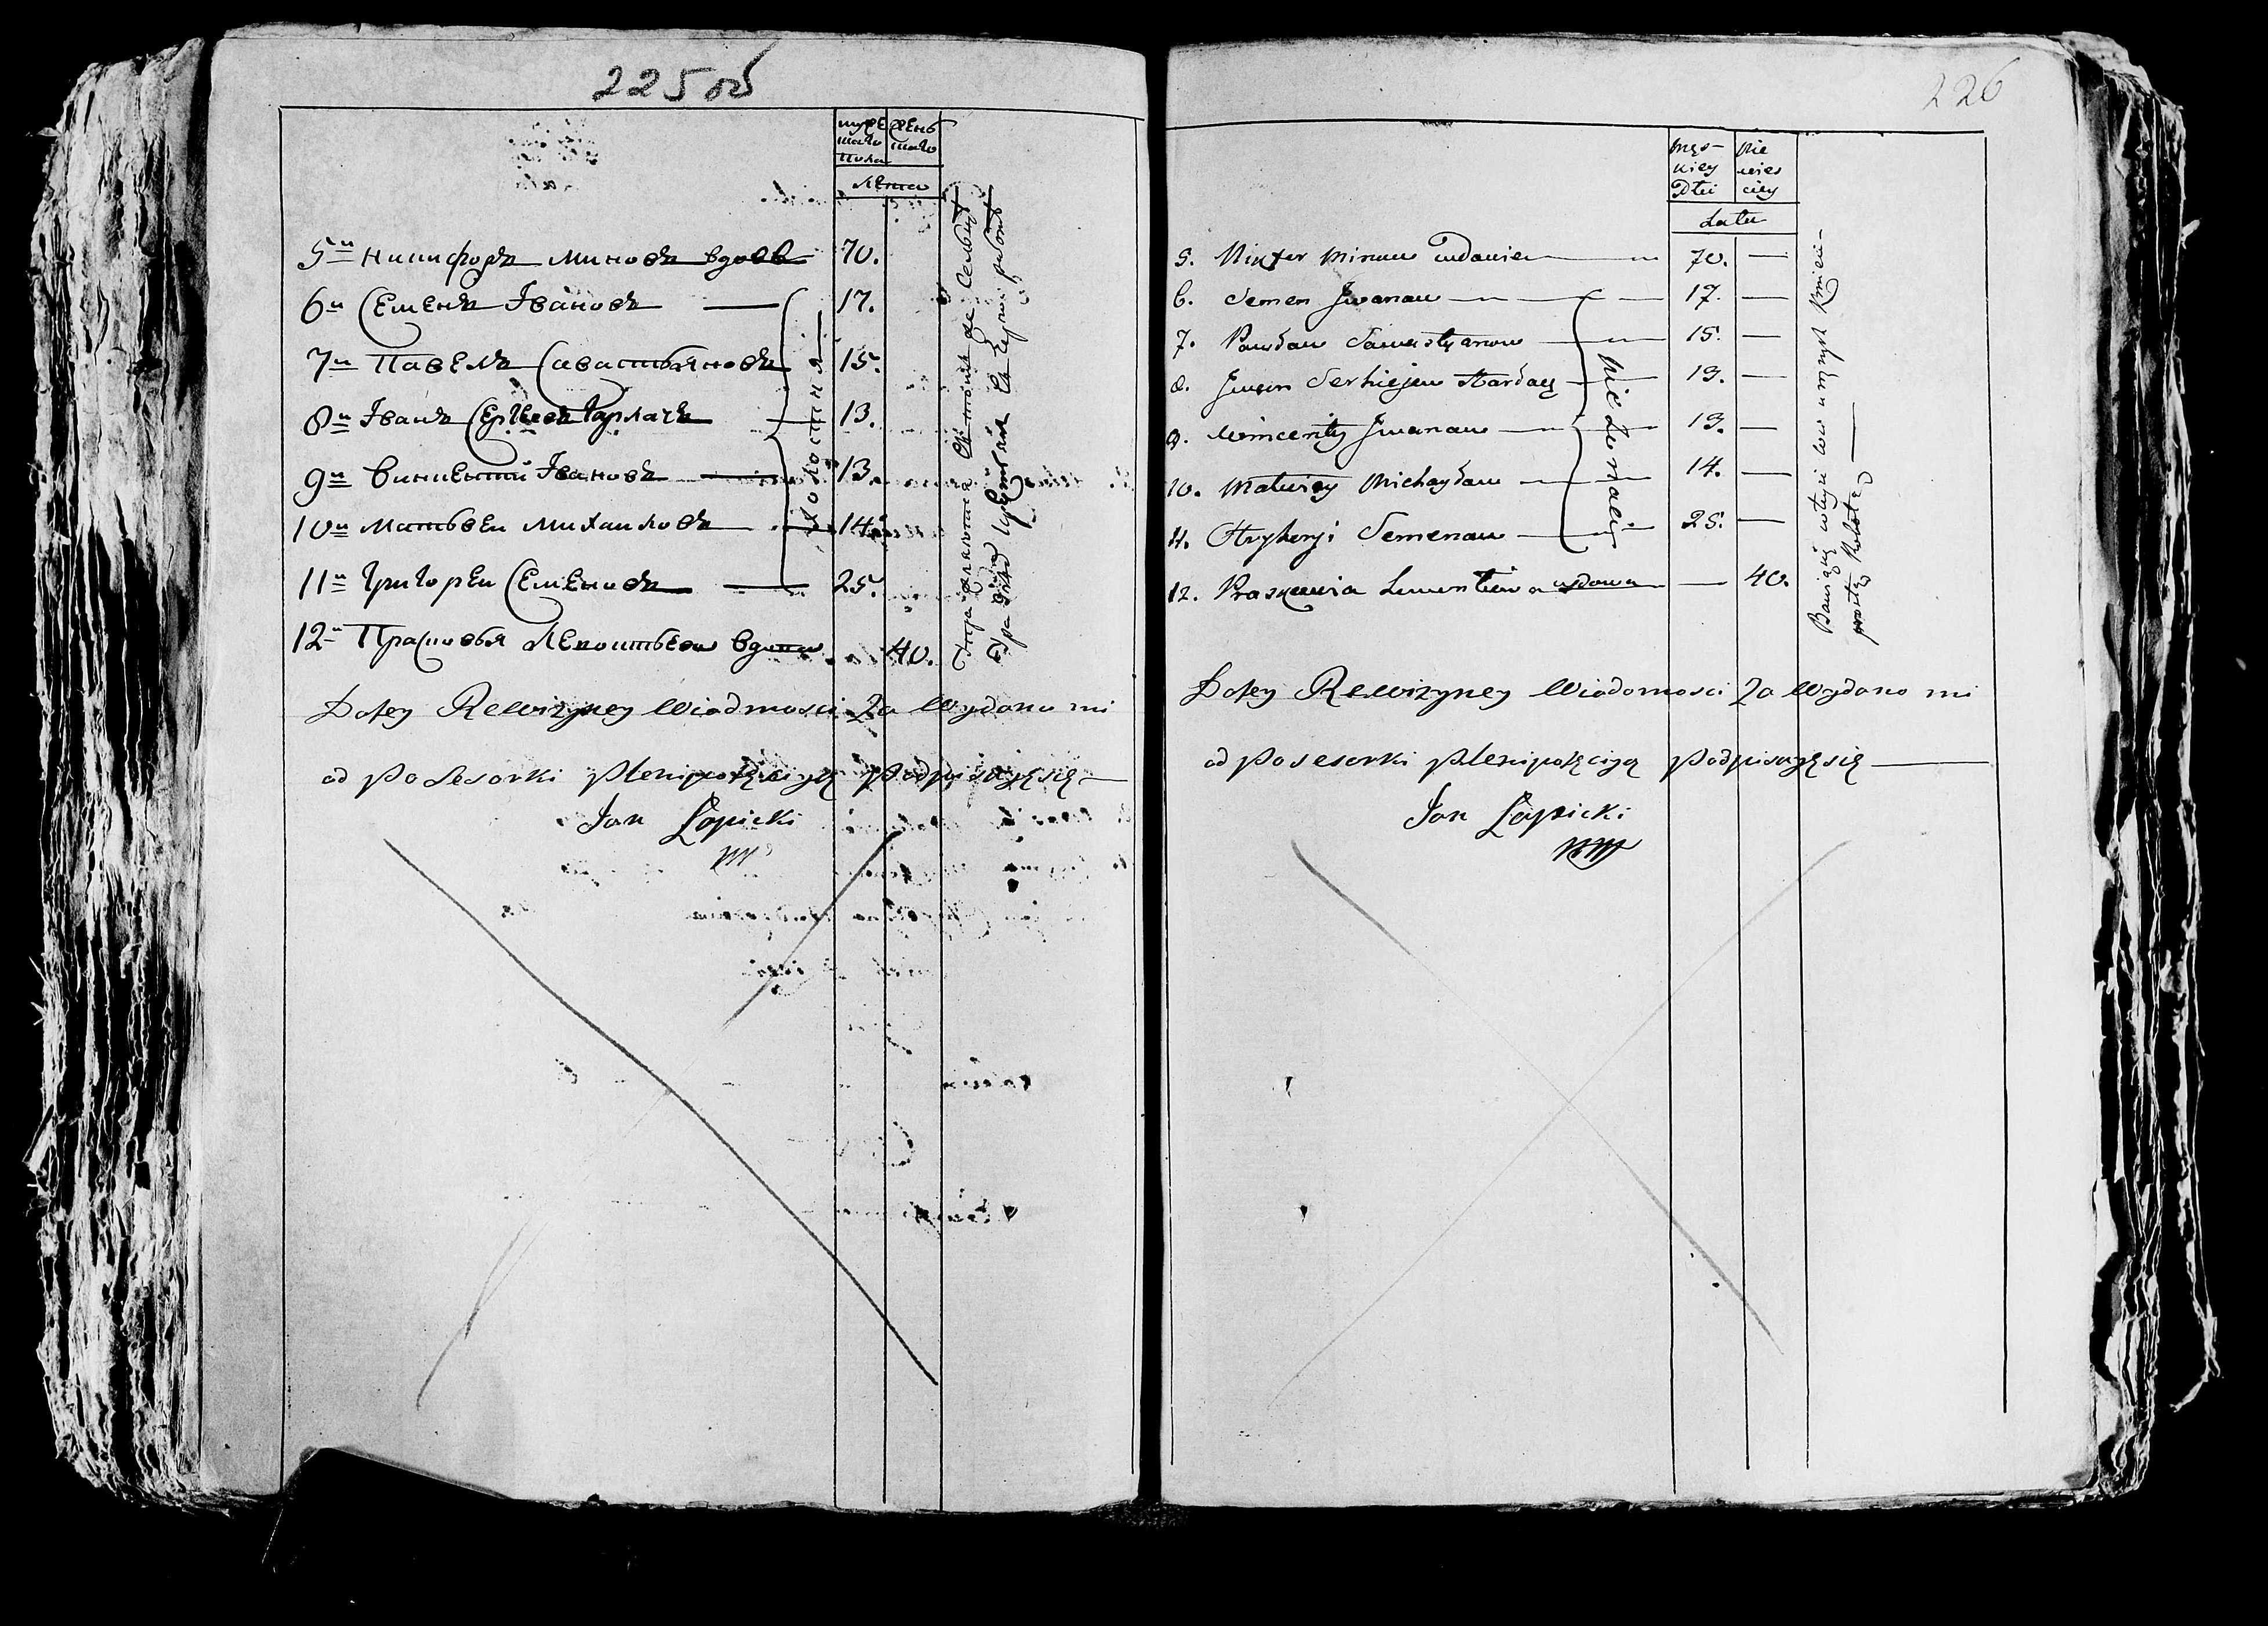 225 об
муже
скаго
пола
жен
скаго
лета
5 Никифоръ Миновъ вдовъ 70.
6 Семенъ Івановъ 17.
7 Павелъ Савастьяновъ 15.
8 Іванъ Сергеевъ 13.
9 Винцентій Івановъ 13.
10 Матьвеи Михаиловъ 14.
11 Григореи Семеновъ 25.
12 Прасковья Леонтьева вдова 40.
холостыя
Dotey Rewizyney Wiadmosci Za Wydano mi
od Posesorki Plenipotęcyą Podpisuję się
Jan Łapicki
226
męs-
kiey
Płci
żie
skiey
Lata
5. Nikifor Minow wdowiec 70.
6. Semen Jwanaw 17.
7. Pawław Sawastyanow 15.
8. Jwan Serhiejew 13.
9. Wincenty Jwanaw 13.
10. Matwiey Michayław 14.
11. Hryhory Semenaw 25.
12. Praskowia Lewontiewa wdowa 40.
nieżonaci
Dotey Rewizyney Wiadomosci Za Wydano mi
od Posesorki Plenipotęcyą Podpisuję się
Jan Łapicki